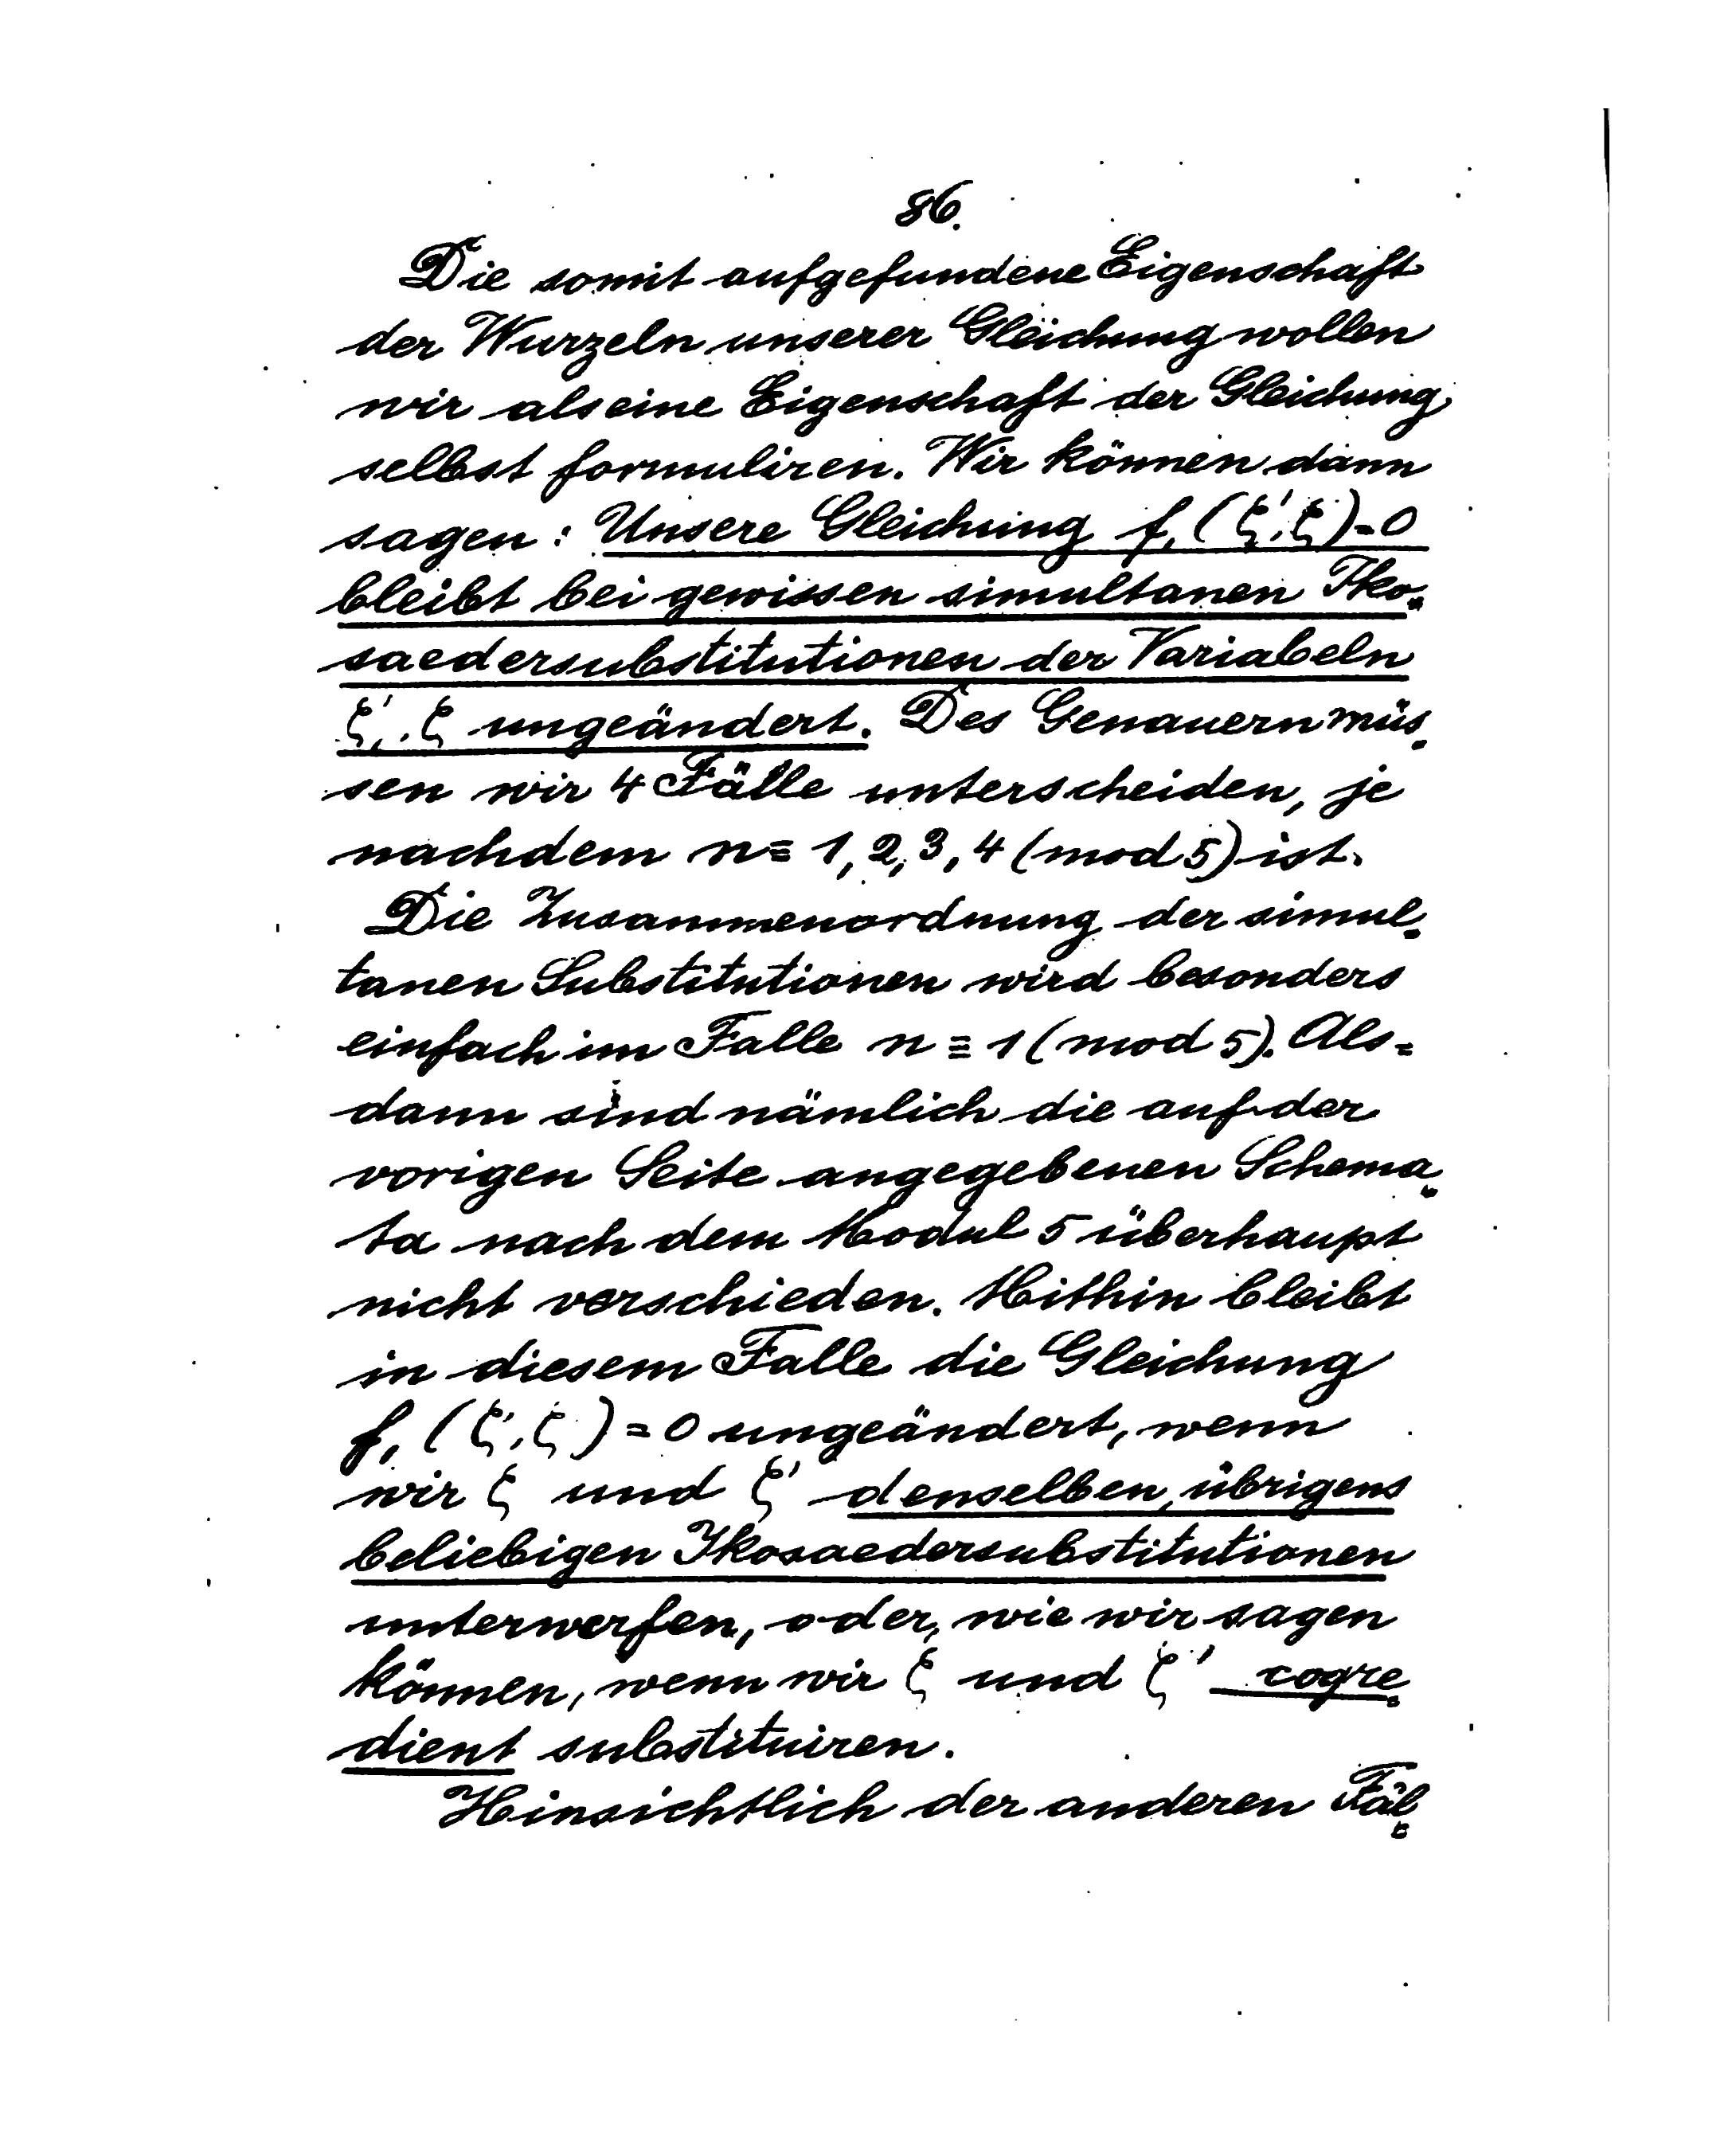 86.
Die somit aufgefundene Eigenschaft
der Wurzeln unserer Gleichung wollen
wir als eine Eigenschaft der Gleichung
selbst formuliren. Wir können dann
sagen: Unsere Gleichung f₁(ζ′,ζ)=0
bleibt bei gewissen simultanen Iko-
saedersubstitutionen der Variabeln
ζ′, ζ ungeändert. Des Genauern müs-
sen wir 4 Fälle unterscheiden, je
nachdem n≡ 1, 2, 3, 4 (mod 5) ist.
Die Zusammenordnung der simul-
tanen Substitutionen wird besonders
einfach im Falle n ≡ 1 (mod 5). Als-
dann sind nämlich die auf der
vorigen Seite angegebenen Schema-
ta nach dem Modul 5 überhaupt
nicht verschieden. Mithin bleibt
in diesem Falle die Gleichung
f₁(ζ′,ζ)=0 ungeändert, wenn
wir ζ und ζ′ denselben, übrigens
beliebigen Ikosaedersubstitutionen
unterwerfen, oder, wie wir sagen
können, wenn wir ζ und ζ′ cogre-
dient substituiren.
Hinsichtlich der anderen Fäl-